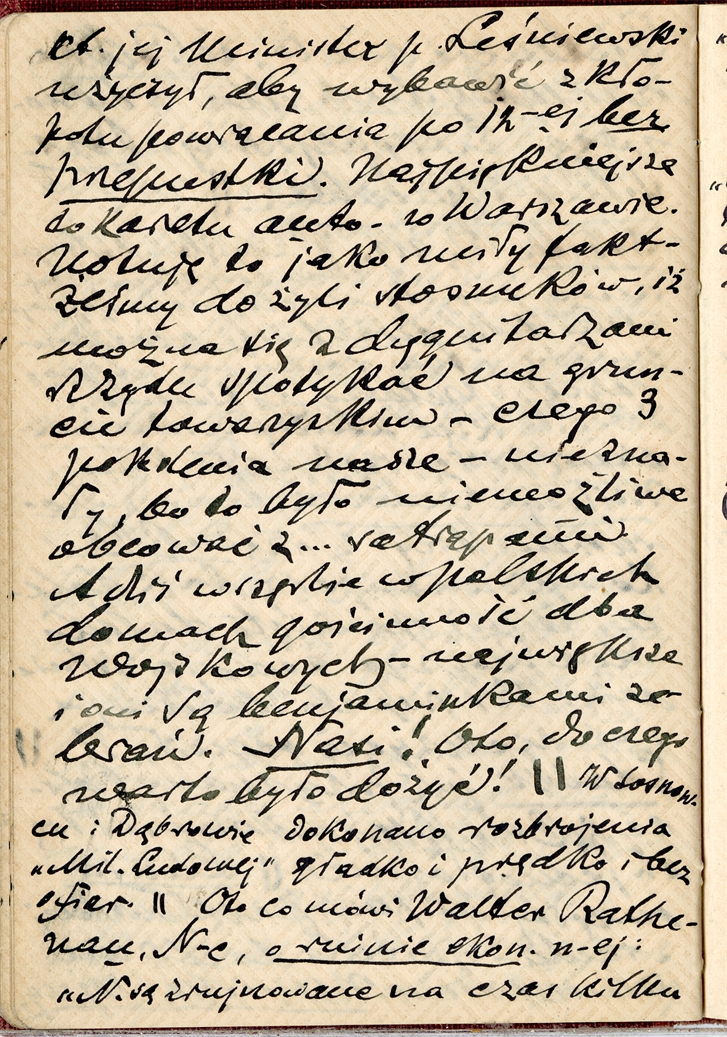 kt. jej Minister p. Leśniewski
użyczył, aby wybawić z kło-
potu powracania po 12-ej bez
przepustki. Najpiękniejsze
to karetu auto- w Warszawie.
Notuję to jako miły fakt-
żeśmy dożyli stosunków, iż
można się z dygnitarzami
rządu spotykać na grun-
cie towarzyskim – czego 3
pokolenia nasze – niezna-
ły, bo to było niemożliwe
obcować z... satrapami
A dziś wszędzie w polskich
domach gościnność dla
wojskowych – największa
i oni są benjaminkami ze-
brań. Nasi! Oto, do czego
warto było dożyć! || W Sosnow-
cu i Dąbrowie dokonano rozbrojenia
"Mil. Ludowej" gładko i prędko i bez
ofiar. || Oto co mówi Walter Rathe-
nau, N-c, o ruinie ekon. n-ej:
"N. są zrujnowane na czas kilku